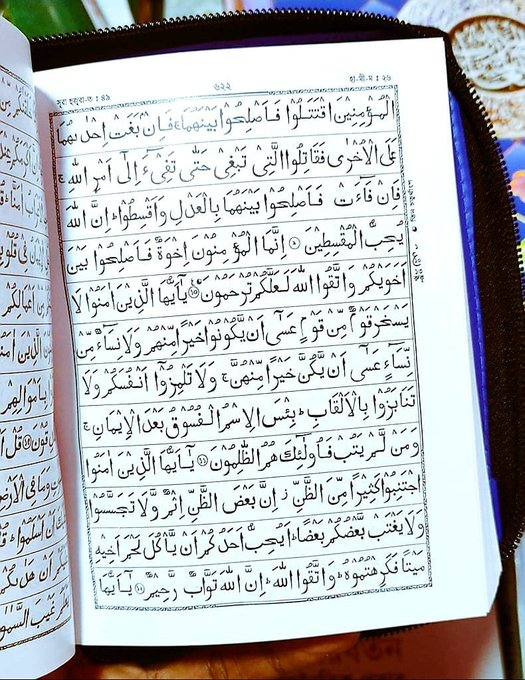 সূরা হুজুরা-ত : ৪৯ ৬২২ হা-মী-ম : ২৬
الْمُؤْمِنِيْنَ اقْتَتَلُوْا فَاَصْلِحُوْا بَيْنَهُمَا ۚ فَاِنْۢ بَغَتْ اِحْدٰىهُمَا
عَلَى الْاُخْرٰى فَقَاتِلُوا الَّتِيْ تَبْغِيْ حَتّٰى تَفِيْٓءَ اِلٰٓى اَمْرِ اللّٰهِ ۚ
فَاِنْ فَآءَتْ فَاَصْلِحُوْا بَيْنَهُمَا بِالْعَدْلِ وَاَقْسِطُوْا ؕ اِنَّ اللّٰهَ
يُحِبُّ الْمُقْسِطِيْنَ ۹ اِنَّمَا الْمُؤْمِنُوْنَ اِخْوَةٌ فَاَصْلِحُوْا بَيْنَ
اَخَوَيْكُمْ وَاتَّقُوا اللّٰهَ لَعَلَّكُمْ تُرْحَمُوْنَ ۱۰ يٰٓاَيُّهَا الَّذِيْنَ اٰمَنُوْا لَا
يَسْخَرْ قَوْمٌ مِّنْ قَوْمٍ عَسٰٓى اَنْ يَّكُوْنُوْا خَيْرًا مِّنْهُمْ وَلَا نِسَآءٌ مِّنْ
نِّسَآءٍ عَسٰٓى اَنْ يَّكُنَّ خَيْرًا مِّنْهُنَّ ۚ وَلَا تَلْمِزُوْٓا اَنْفُسَكُمْ وَلَا
تَنَابَزُوْا بِالْاَلْقَابِ ؕ بِئْسَ الِاسْمُ الْفُسُوْقُ بَعْدَ الْاِيْمَانِ ۚ
وَمَنْ لَّمْ يَتُبْ فَاُولٰٓئِكَ هُمُ الظّٰلِمُوْنَ ۱۱ يٰٓاَيُّهَا الَّذِيْنَ اٰمَنُوا
اجْتَنِبُوْا كَثِيْرًا مِّنَ الظَّنِّ ز اِنَّ بَعْضَ الظَّنِّ اِثْمٌ وَّلَا تَجَسَّسُوْا
وَلَا يَغْتَبْ بَّعْضُكُمْ بَعْضًا ؕ اَيُحِبُّ اَحَدُكُمْ اَنْ يَّاْكُلَ لَحْمَ اَخِيْهِ
مَيْتًا فَكَرِهْتُمُوْهُ ؕ وَاتَّقُوا اللّٰهَ ؕ اِنَّ اللّٰهَ تَوَّابٌ رَّحِيْمٌ ۱۲ يٰٓاَيُّهَا